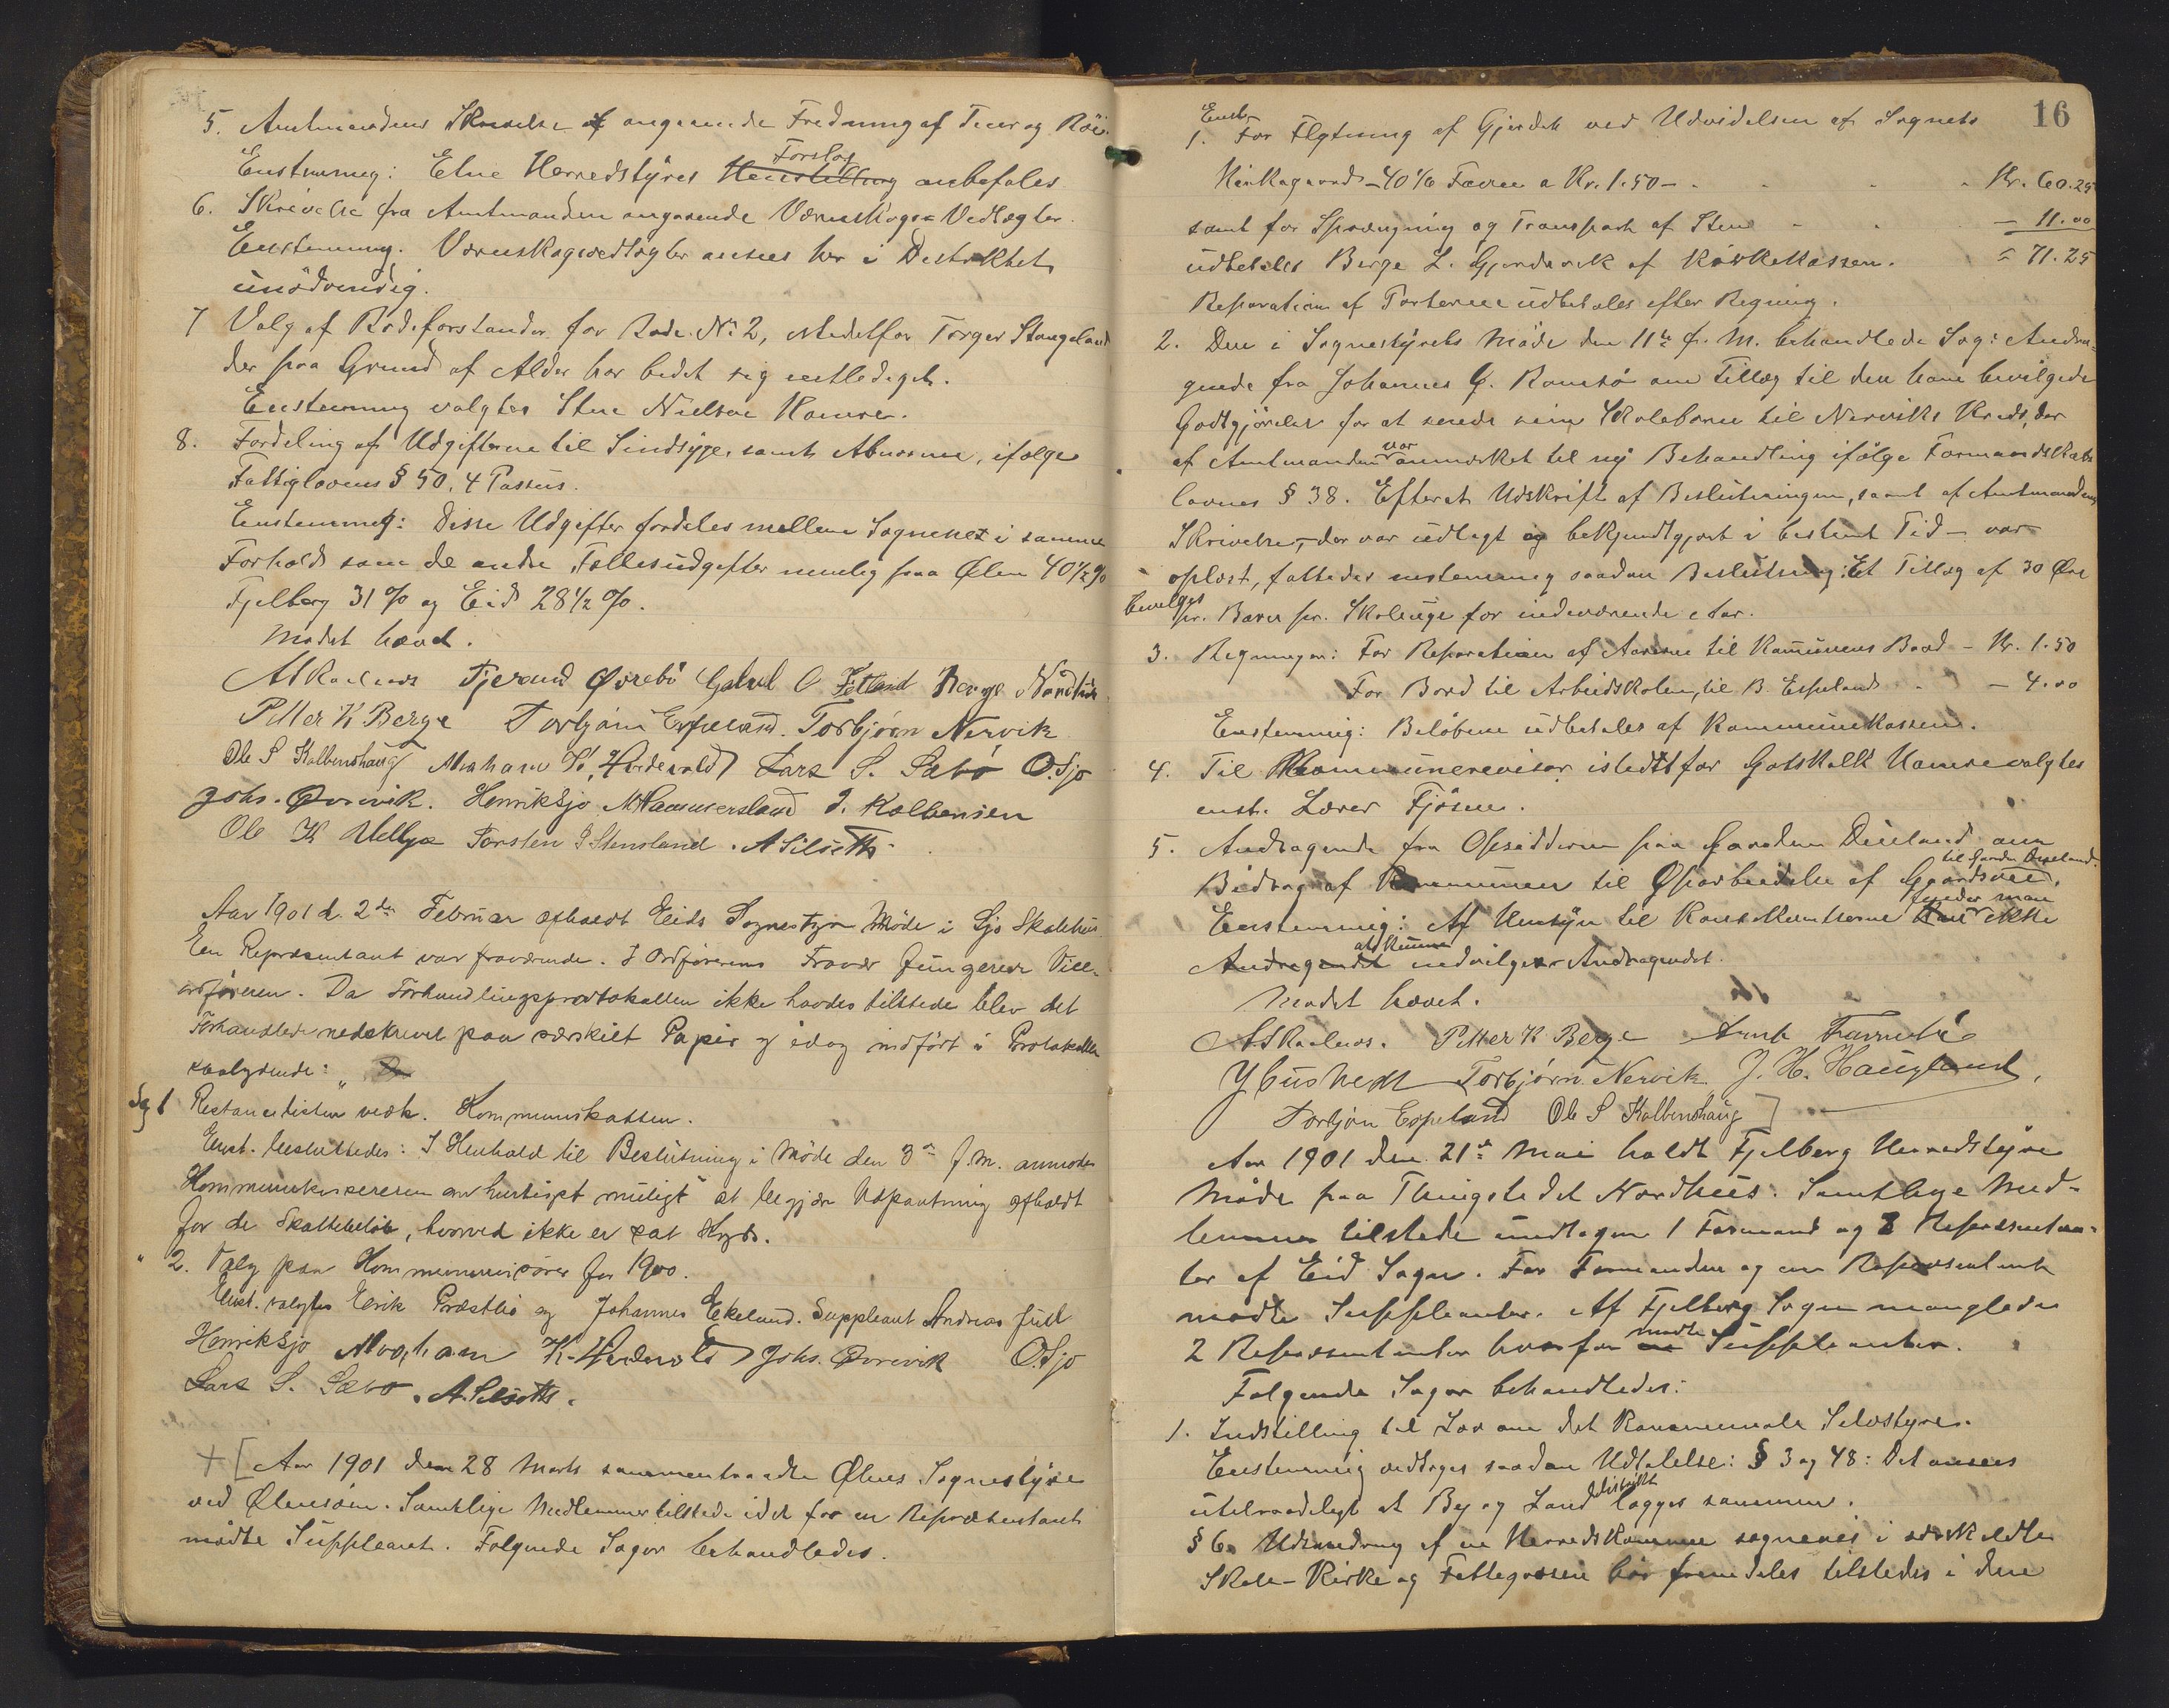 5. Amtmandens Skrivelse angaaende Fredning af Teier og
Enstemmig: Etne Herredstyres Henstilling Forslag anbefales
6. Skrivelse fra Amtmanden angaaende Værneskogs Vedtægter.
Enstemmig. Værneskogsvedtægter ansees her i Destriktet
unødvendig.
7 Valg af Rodeforstander for Rode No 2, istedetfor Torger Stangeland
der paa Grund af Alder har bedt sig entlediget.
Enstemmig valgtes Sten Nielsen Hamre.
8. Fordeling af Udgifterne til Sindsyge, samt Abnorme, ifølge
Fattiglovens § 50, 4 Passus.
Enstemmig: Disse Udgifter fordeles mellem Sognene i samme
Forhold som de andre Fællesudgifter nemlig paa Ølen 40 1/2 %
Fjelberg 31 % og Eid 28 1/2 %.
Mødet hævet.
Tjerand Ørrebø Gabriel O Fetland Børge Nordhus
Peter K Berge Torbjørn Espeland. Torbjørn Nervik
Ole S Kalbenshaug Abraham K. Hardervold Lars S. Sæbø O. Sjo
Johs. Øvrevik. Henrik Sjo M Hammersland J. Kalbensen
Ole K Vellge Torsten J Stensland. A Silseth.
Aar 1901 d. 2den Februar afholdt Eids Sognestyre Møde i Sjo Skolehus.
Een Repræsentant var fraværende. I Ordførerens Fravær fungerer Vice-
ordføreren. Da Forhandlingsprotokollen ikke havdes tilstede blev det
Forhandlede nedskrevet paa særskilt Papir og idag indført i Protokollen
saalydende: "
Sag 1 Restancelisten vedk. Kommuneskatten.
Enst. besluttedes: I Henhold til Beslutning i Møde den 3die f. M. anmodes
Kommunekassereren om "hurtigst muligt" at begjære Udpantning afholdt
for de Skattebeløb, hvorved ikke er sat Kryds.
" 2. Valg paa Kommunerevisorer for 1900.
Enst. valgtes Eerik Præstbø og Johannes Ekeland. Suppleant Andreas Juul
Henrik Sjo Abraham K. Hardervold Johs. Øvrevik O. Sjo
Lars S. Sæbø. A. Silseth.
+ [ Aar 1901 den 28 Marts sammentraadte Ølens Sognestyre
ved Ølensøen. Samtlige Medlemmer tilstede idet for en Repræsentant
mødte Suppleant. Følgende Sager behandledes.
16
Enst.
1. For Flytning af Gjerdet ved Udvidelsen af Sognets
Kirkegaard - 40 1/6 Favne a Kr. 1.50 - Kr. 60.25
samt for Sprængning og Transport af Sten - 11.00
udbetales Børge L. Gjerdevik af Kirkekassen. = 71.25
Reparation af Porterne udbetales efter Regning.
2. Den i Sognestyrets Møde den 11te f. M. behandlede Sag: Andra-
gende fra Johannes J. Ramsø om Tillæg til den ham bevilgede
Godtgjørelse for at sende sine Skolebørn til Nerviks Kreds, der
af Amtmanden var anmerket til ny Behandling ifølge Formandskabs
lovens § 38. Efterat Udskrift af Beslutningen, samt af Amtmandens
Skrivelse, - der var udlagt og bekjendtgjort i bestemt Tid - var
oplæst, fattedes enstemmig saadan Beslutning: Et Tillæg af 30 Øre
bevilges pr. Barn pr. Skoleuge for indeværende Aar.
3. Regninger: For Reparation af Aarerne til Kommunens Baad - Kr. 1.50
For Bord til Arbeidskolen, til B. Espeland - 4.00
Enstemmig: Beløbene udbetales af Kommunekassen.
4. Til Kommunerevisor istedetfor Gotskalk Hamre valgtes
enst. Lærer Fjøsne.
5. Andragende fra Opsidderne paa Gaarden Dueland om
Bidrag af Kommunen til Oparbeidelse af Gaardsvei, til Gaarden Dueland.
Enstemmig: Af Hensyn til Konsekventserne finder man ikke
Andragendet at kunne indvilge Andragendet.
Mødet hævet.
Peter K. Berge
Torbjørn Nervik. J. H. Haugland,
Torbjørn Espeland Ole S Kalbenshaug ]
Aar 1901 den 21de Mai holdt Fjelberg Herredstyre
Møde paa Thingstedet Nordhus. Samtlige Med-
lemmer tilstede undtagen 1 Formand og 2 Repræsentan-
ter af Eid Sogn. For Formanden og en Repræsentant
mødte Suppleanter. Af Fjelberg Sogn manglede
2 Repræsentanter hvorfor mødte Suppleanter.
Følgende Sager behandledes:
1. Indstilling til Lov om det kommunale Selvstyre.
Enstemmig vedtoges saadan Udtalelse: § 3 og 48: Det ansees
utilraadeligt at By og Landdistrikt lægges sammen.
§ 6. Udsondring af en Herredskommune sognevis i særskildte
Skole- Kirke og Fattigvæsen bør fremdeles tilstedes i den